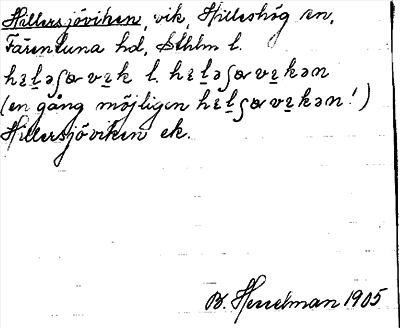 Hillersjöviken, vik, Hilleshög sn,
Färentuna hd, Sthlm l.
hɛl̲əʃœvɛ̲k l. hɛl̲əʃœvɛ̲kən
(en gång möjligen hɛl̲ʃœvɛ̲kən!)
Hillersjöviken ek.
B. Hesselman 1905